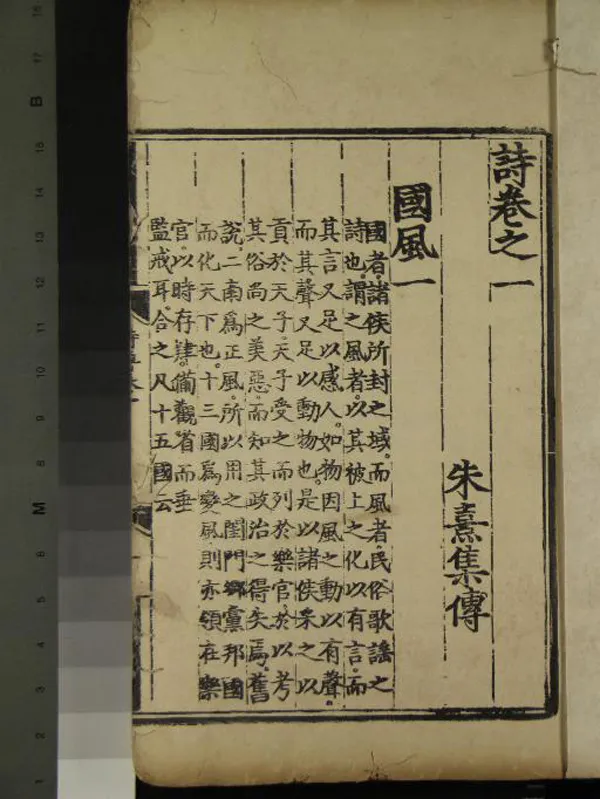 詩卷之一
朱熹集傳
國風一
國者。諸侯所封之域。而風者。民俗歌謠之
詩也。謂之風者。以其被上之化以有言。而
其言又足以感人。如物因風之動以有聲。
而其聲又足以動物也。是以諸侯采之以
貢於天子。天子受之而列於樂官。於以考
其俗尚之美惡。而知其政治之得失焉。舊
說。二南爲正風。所以用之閨門鄉黨邦國
而化天下也。十三國爲變風。則亦領在樂
官。以時存肄。備觀省而垂
監戒耳。合之凡十五國云